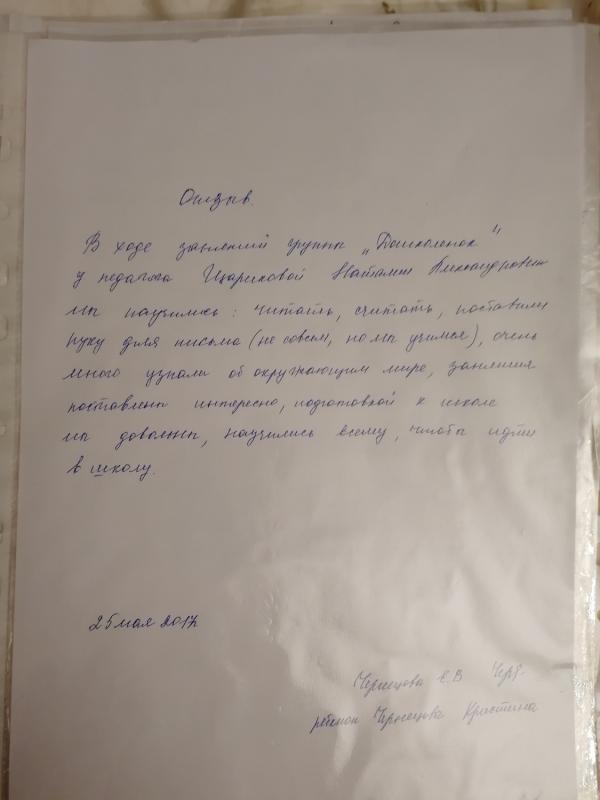 Отзыв.
В ходе занятий группы „Дошколенок"
у педагога Цариковой Наталии Александровны
мы научились: читать, считать, поставили
руку для письма (не совсем, но мы учимся), очень
много узнали об окружающим мире, занятия
поставлены интересно, подготовкой к школе
мы довольны, научились всему, чтобы идти
в школу.
25 мая 2017
Чернецова Е.В
ребенок Чернецова Кристина